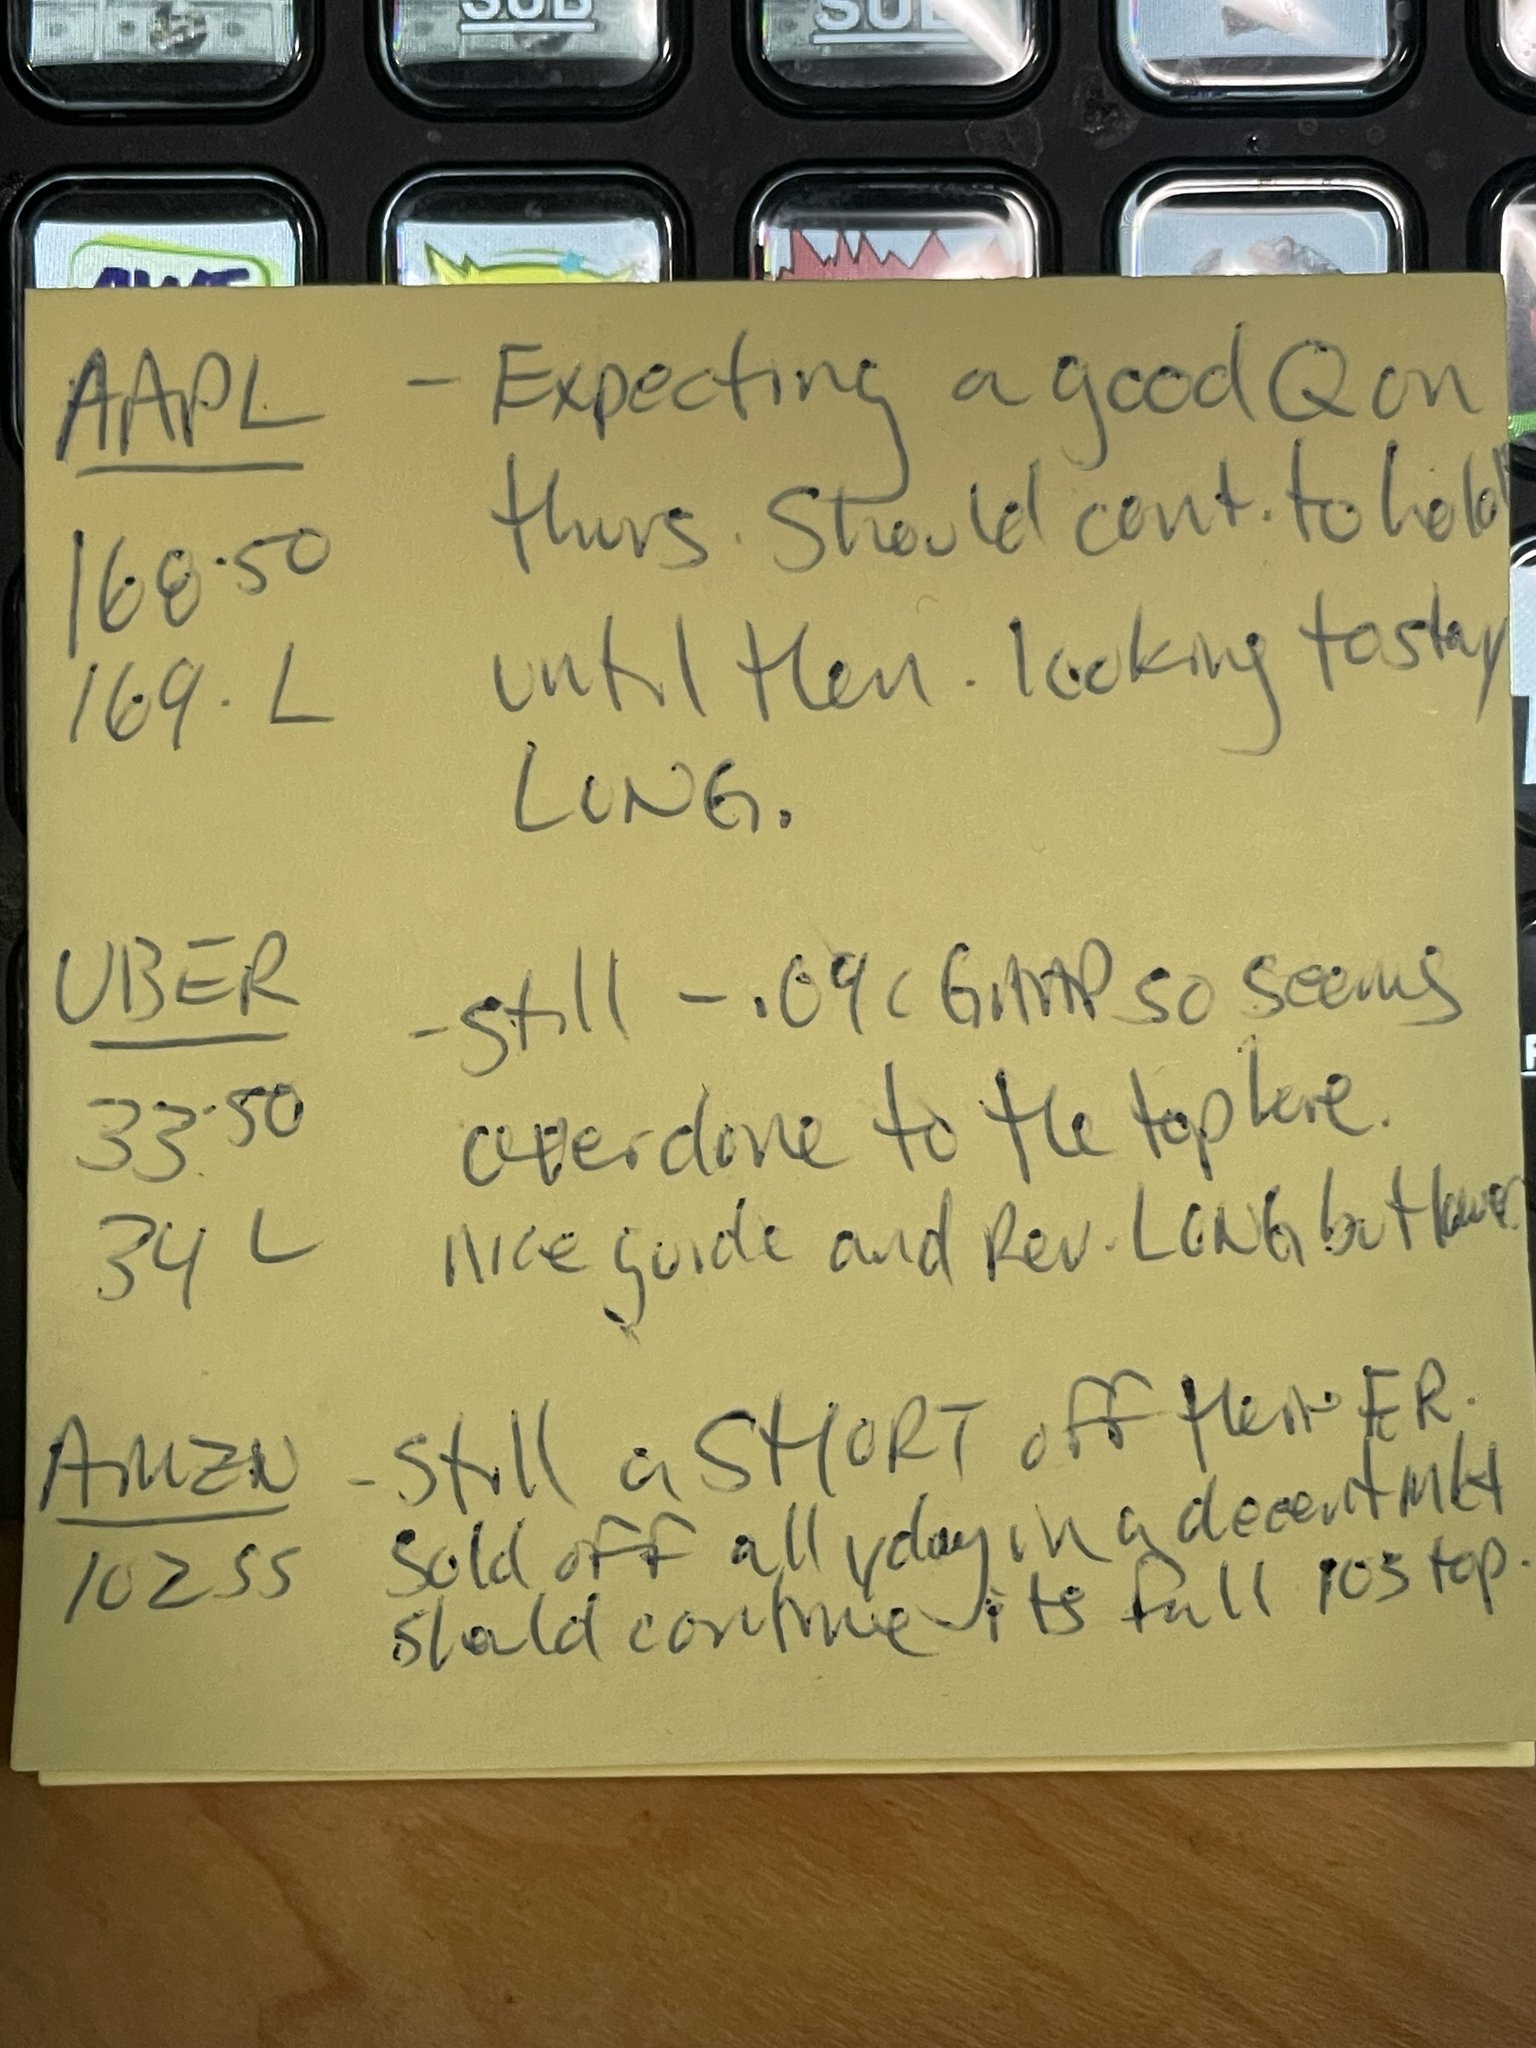 SUB
SUB
AAPL - Expecting a good Q on
thurs. Should cont. to hold
168.50
until then. looking to stay
169. L
LONG.
UBER - still -.09c GAAP so seems
33.50 overdone to the top here.
34 L nice guide and Rev. LONG but lower
AMZN - still a SHORT off their ER.
sold off all yday in a decent mkt
102 SS
should continue its fall 103 top.